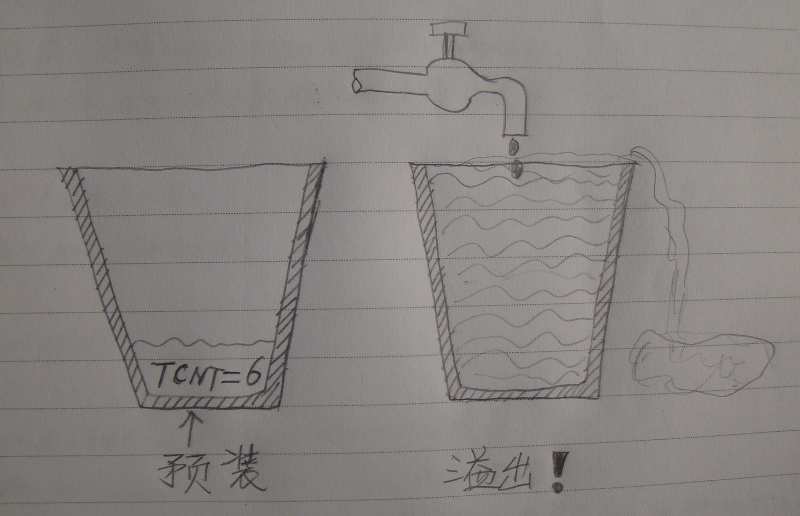 TCNT=6
预装
溢出!